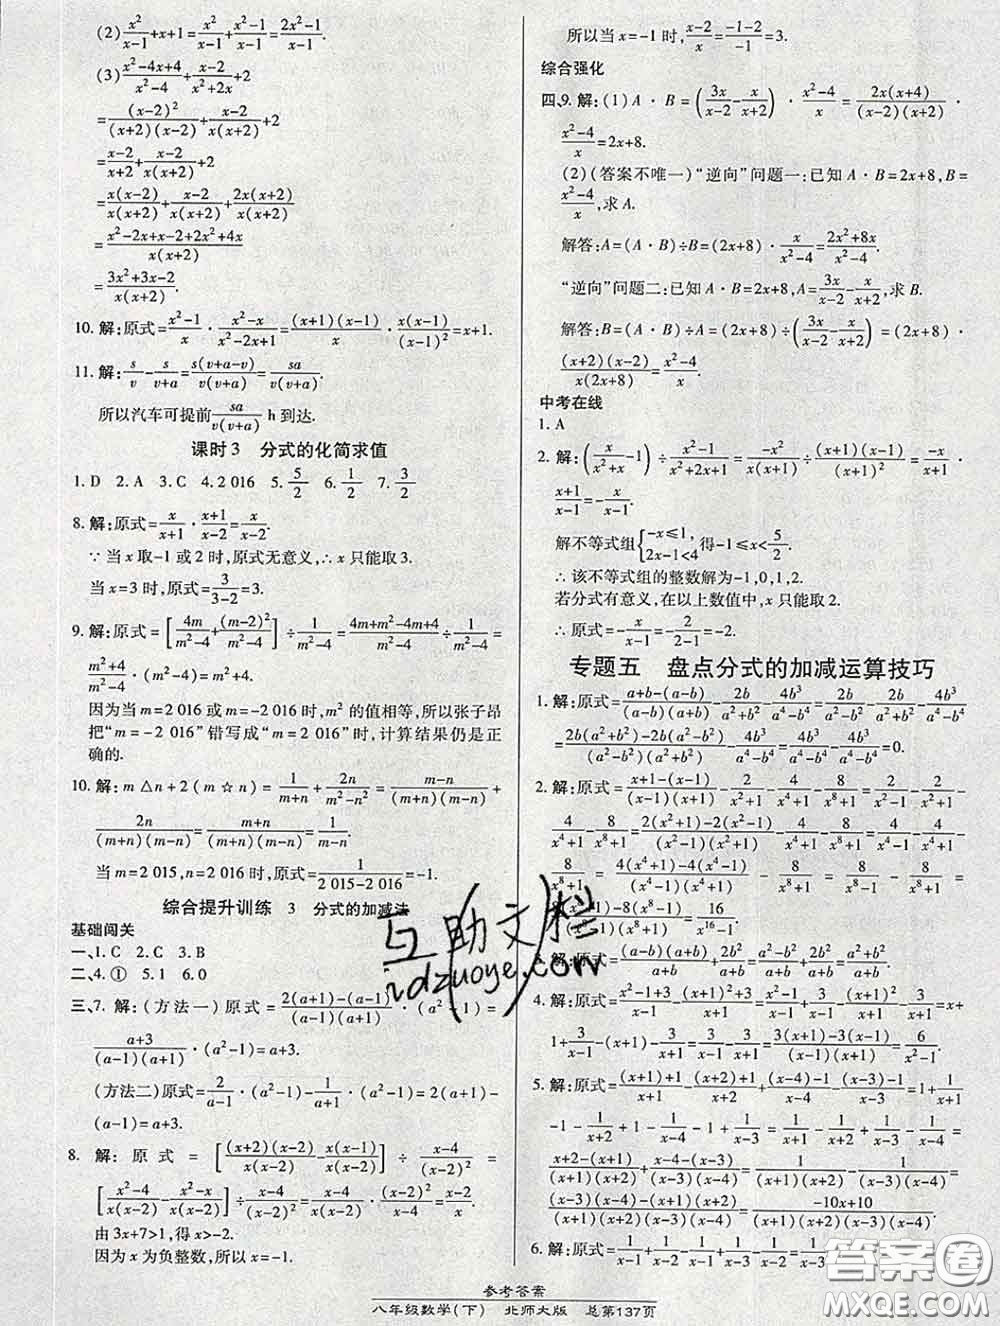 (2) x²/(x-1)+x+1=x²/(x-1)+(x²-1)/(x-1)=(2x²-1)/(x-1).
(3) (x²-4x+4)/(x²-4)+(x-2)/(x²+2x)+2
=(x-2)²/((x+2)(x-2))+(x-2)/(x(x+2))+2
=(x-2)/(x+2)+(x-2)/(x(x+2))+2
=x(x-2)/(x(x+2))+(x-2)/(x(x+2))+2x(x+2)/(x(x+2))
=(x²-2x+x-2+2x²+4x)/(x(x+2))
=(3x²+3x-2)/(x(x+2)).
10. 解:原式=(x²-1)/x·(x²-x)/(x²-2x+1)=(x+1)(x-1)/x·x(x-1)/(x-1)²=x+1.
11. 解:s/v-s/(v+a)=s(v+a-v)/(v(v+a))=sa/(v(v+a)).
所以汽车可提前sa/(v(v+a)) h 到达.
课时3 分式的化简求值
1. D 2. A 3. C 4. 2 016 5. 5/2 6. 1/2 7. 3/2
8. 解:原式=x/(x+1)·(x+1)/(x-2)=x/(x-2).
∵当x取-1或2时,原式无意义,∴x只能取3.
当x=3时,原式=3/(3-2)=3.
9. 解:原式=[4m/(m²-4)+(m-2)²/(m²-4)]÷1/(m²-4)=(4m+m²-4m+4)/(m²-4)÷1/(m²-4)=
(m²+4)/(m²-4)
因为当m=2 016或m=-2 016时,m²的值相等,所以张子昂
把“m=-2 016”错写成“m=2 016”时,计算结果仍是正
确的.
10. 解:m△n+2(m☆n)=1/(m+n)+2n/(m²-n²)=(m-n)/((m+n)(m-n))+
2n/((m+n)(m-n))=(m+n)/((m+n)(m-n))=1/(m-n).
当m=2 015,n=2 016时,原式=1/(2 015-2 016)=-1.
综合提升训练 3 分式的加减法
基础闯关
一、1. C 2. C 3. B
二、4. ① 5. 1 6. 0
三、7. 解:(方法一)原式=(2(a+1)-(a-1))/((a-1)(a+1))·(a²-1)=
(a+3)/((a-1)(a+1))·(a²-1)=a+3.
(方法二)原式=2/(a-1)·(a²-1)-1/(a+1)·(a²-1)=2(a+1)
-(a-1)=a+3.
8. 解:原式=[(x+2)(x-2)/(x(x-2))-x(x-1)/(x(x-2))]÷(x-4)/(x-2)²=
[(x²-4)/(x(x-2))-(x²-x)/(x(x-2))]÷(x-4)/(x-2)²=(x-4)/(x(x-2))·(x-2)²/(x-4)=(x-2)/x.
由3x+7>1,得x>-2.
因为x为负整数,所以x=-1.
所以当x=-1时,(x-2)/x=(-1-2)/(-1)=3.
综合强化
四、9. 解:(1)A·B=(3x/(x-2)-x/(x+2))·(x²-4)/x=2x(x+4)/((x-2)(x+2))·
(x²-4)/x=2x+8.
(2)(答案不唯一)“逆向”问题一:已知A·B=2x+8,B=
(x²-4)/x,求A.
解答:A=(A·B)÷B=(2x+8)·x/(x²-4)=(2x²+8x)/(x²-4).
“逆向”问题二:已知A·B=2x+8,A=3x/(x-2)-x/(x+2),求B.
解答:B=(A·B)÷A=(2x+8)÷(3x/(x-2)-x/(x+2))=(2x+8)·
(x+2)(x-2)/(x(2x+8))=(x²-4)/x.
中考在线
1. A
2. 解:(x/(x²+x)-1)÷(x²-1)/(x²+2x+1)=-x²/(x(x+1))÷(x+1)(x-1)/(x+1)²=-x/(x+1)·
(x+1)/(x-1)=-x/(x-1).
解不等式组{-x≤1, 2x-1<4得-1≤x<5/2.
∴该不等式组的整数解为-1,0,1,2.
若分式有意义,在以上数值中,x只能取2.
∴原式=-x/(x-1)=-2/(2-1)=-2.
专题五 盘点分式的加减运算技巧
1. 解:原式=(a+b-(a-b))/((a-b)(a+b))-2b/(a²+b²)-4b³/(a⁴-b⁴)=2b/(a²-b²)-2b/(a²+b²)-4b³/(a⁴-b⁴)
=(2b(a²+b²)-2b(a²-b²))/((a²-b²)(a²+b²))-4b³/(a⁴-b⁴)=4b³/(a⁴-b⁴)-4b³/(a⁴-b⁴)=0.
2. 解:原式=(x+1-(x-1))/((x-1)(x+1))-2/(x²+1)-4/(x⁴+1)-8/(x⁸+1)=2/(x²-1)-2/(x²+1)-
4/(x⁴+1)-8/(x⁸+1)=(2(x²+1)-2(x²-1))/((x²-1)(x²+1))-4/(x⁴+1)-8/(x⁸+1)=4/(x⁴-1)-4/(x⁴+1)-
8/(x⁸+1)=(4(x⁴+1)-4(x⁴-1))/((x⁴-1)(x⁴+1))-8/(x⁸+1)=8/(x⁸-1)-8/(x⁸+1)=
+1)-8(x⁸-1)=16/(x¹⁶-1).
解:原式=(a-b)(a+b)/(a+b)+b²/(a+b)=(a²-b²)/(a+b)+b²/(a+b)=a²/(a+b).
4. 解:原式=(x²-1+3)/(x-1)-((x+1)²+3)/(x+1)=(x²-1)/(x-1)+3/(x-1)-(x+1)²/(x+1)-3/(x+1)=x+
1+3/(x-1)-(x+1)-3/(x+1)=3/(x-1)-3/(x+1)=(3(x+1)-3(x-1))/((x-1)(x+1))=6/(x²-1).
5. 解:原式=((x+1)+1)/(x+1)-((x+2)+1)/(x+2)+((x-4)-1)/(x-4)-((x-3)-1)/(x-3)=1+1/(x+1)
-1-1/(x+2)+1-1/(x-4)-1+1/(x-3)=1/(x+1)-1/(x+2)-1/(x-4)+1/(x-3)=
(x+2-(x+1))/((x+1)(x+2))+(x-4-(x-3))/((x-3)(x-4))=1/((x+1)(x+2))-1/((x-3)(x-4))=
((x-3)(x-4)-(x+1)(x+2))/((x+1)(x+2)(x-3)(x-4))=(-10x+10)/((x+1)(x+2)(x-3)(x-4)).
6. 解:原式=1/(x-1)-1/x+1/(x+1)
互助文档
idzuoye.com
答案圈
MXQE.COM
参考答案
八年级数学(下) 北师大版 总第137页